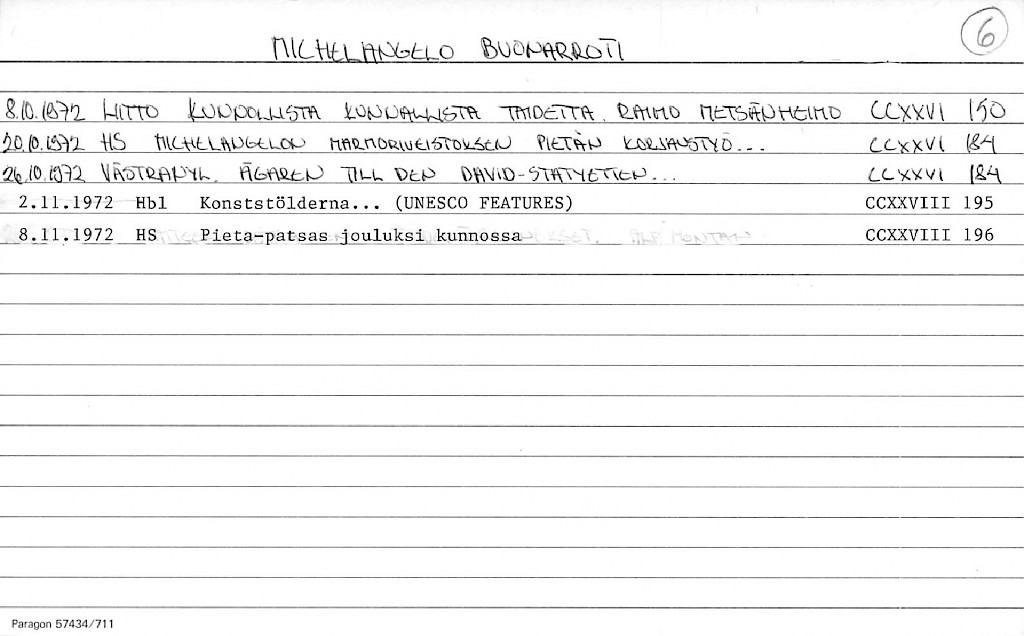 6
MICHELANGELO BUONARROTI
8.10.1972 LIITTO KUNNOLLISTA KUNNALLISTA TAIDETTA. RAIMO METSÄNHEIMO CCXXVI 150
20.10.1972 HS MICHELANGELON MARMORIVEISTOKSEN PIETÀN KORJAUSTYÖ... CCXXVI 184
26.10.1972 VÄSTRANYL. ÄGAREN TILL DEN DAVID-STATYETTEN... CCXXVI 184
2.11.1972 Hbl Konststölderna... (UNESCO FEATURES) CCXXVIII 195
8.11.1972 HS Pieta-patsas jouluksi kunnossa CCXXVIII 196
Paragon 57434/711